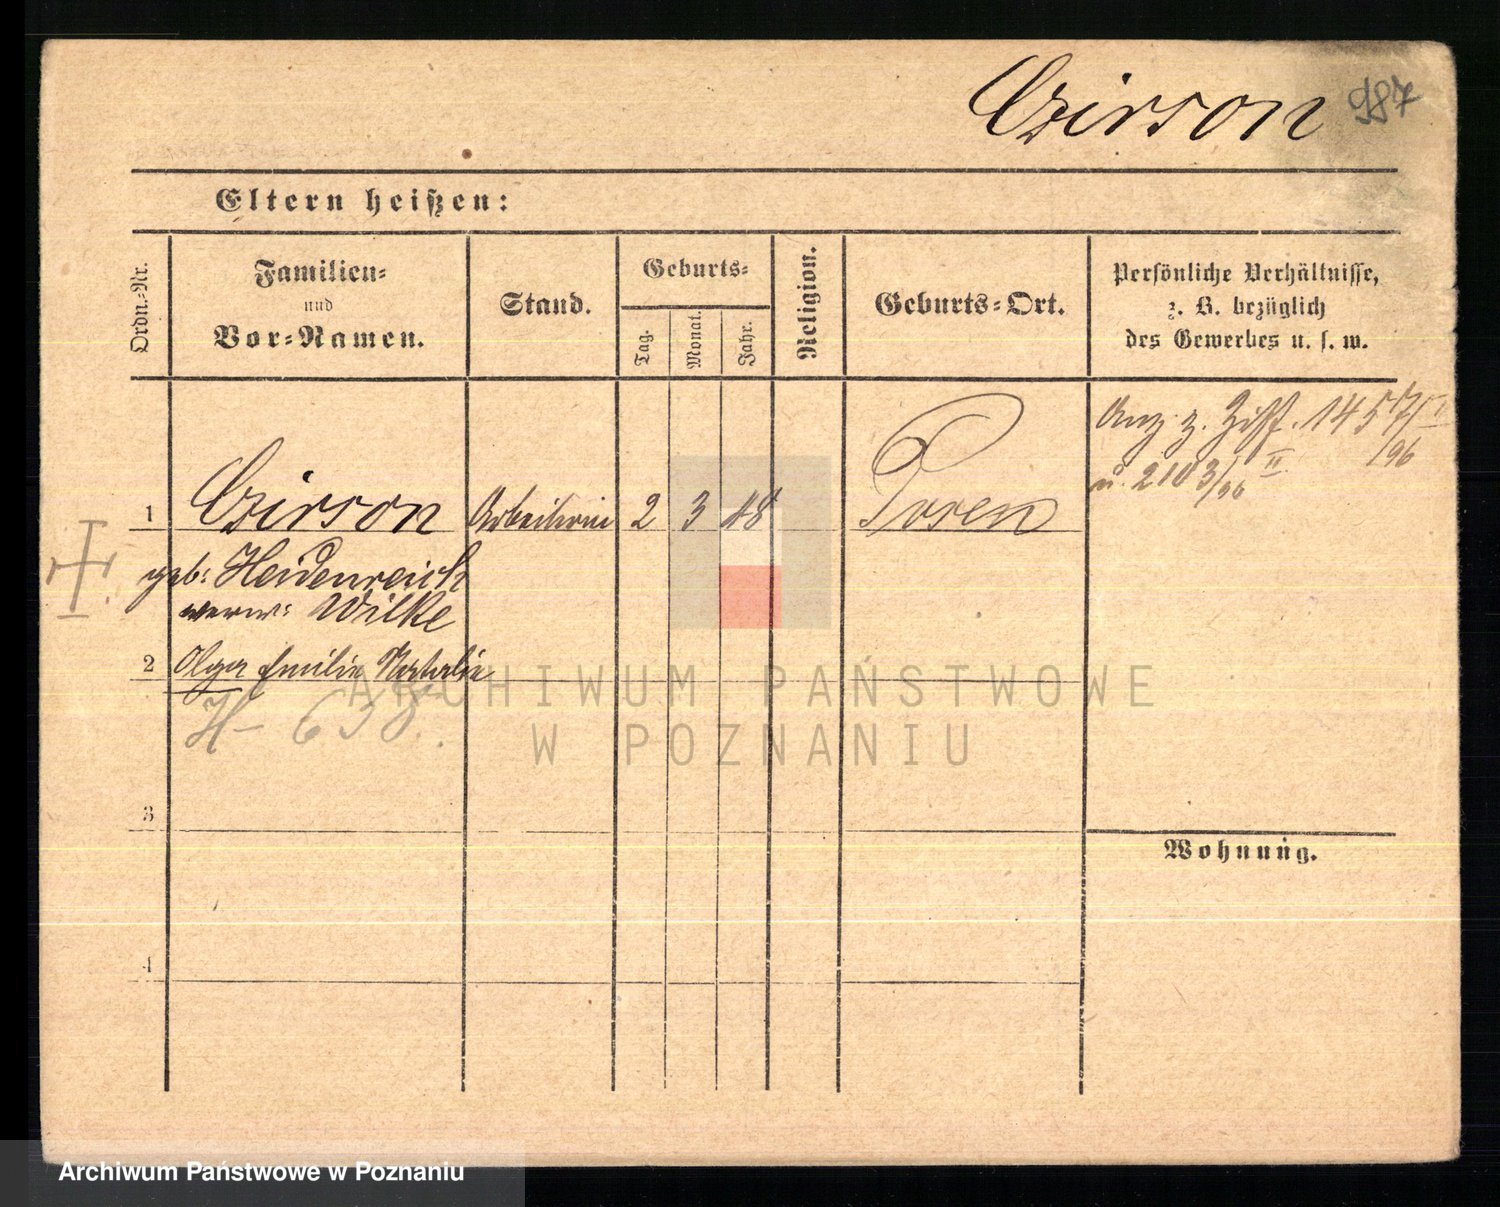 Czirson 987
Eltern heißen:
Ordn.-Nr.
Familien-
und
Vor-Namen.
Stand.
Geburts-
Tag.
Monat.
Jahr.
Religion.
Geburts-Ort.
Persönliche Verhältnisse,
z. B. bezüglich
des Gewerbes u. s. w.
Anz z. Ziff. 1457/II
/96
u. 2103/96 II
1 Czirson Arbeiterin 2 3 48 Posen
geb: Heidenreich
verw: Wilke
2 Olga Emilie Natalie
H- 638.
3
Wohnung.
4
ARCHIWUM PAŃSTWOWE
W POZNANIU
Archiwum Państwowe w Poznaniu